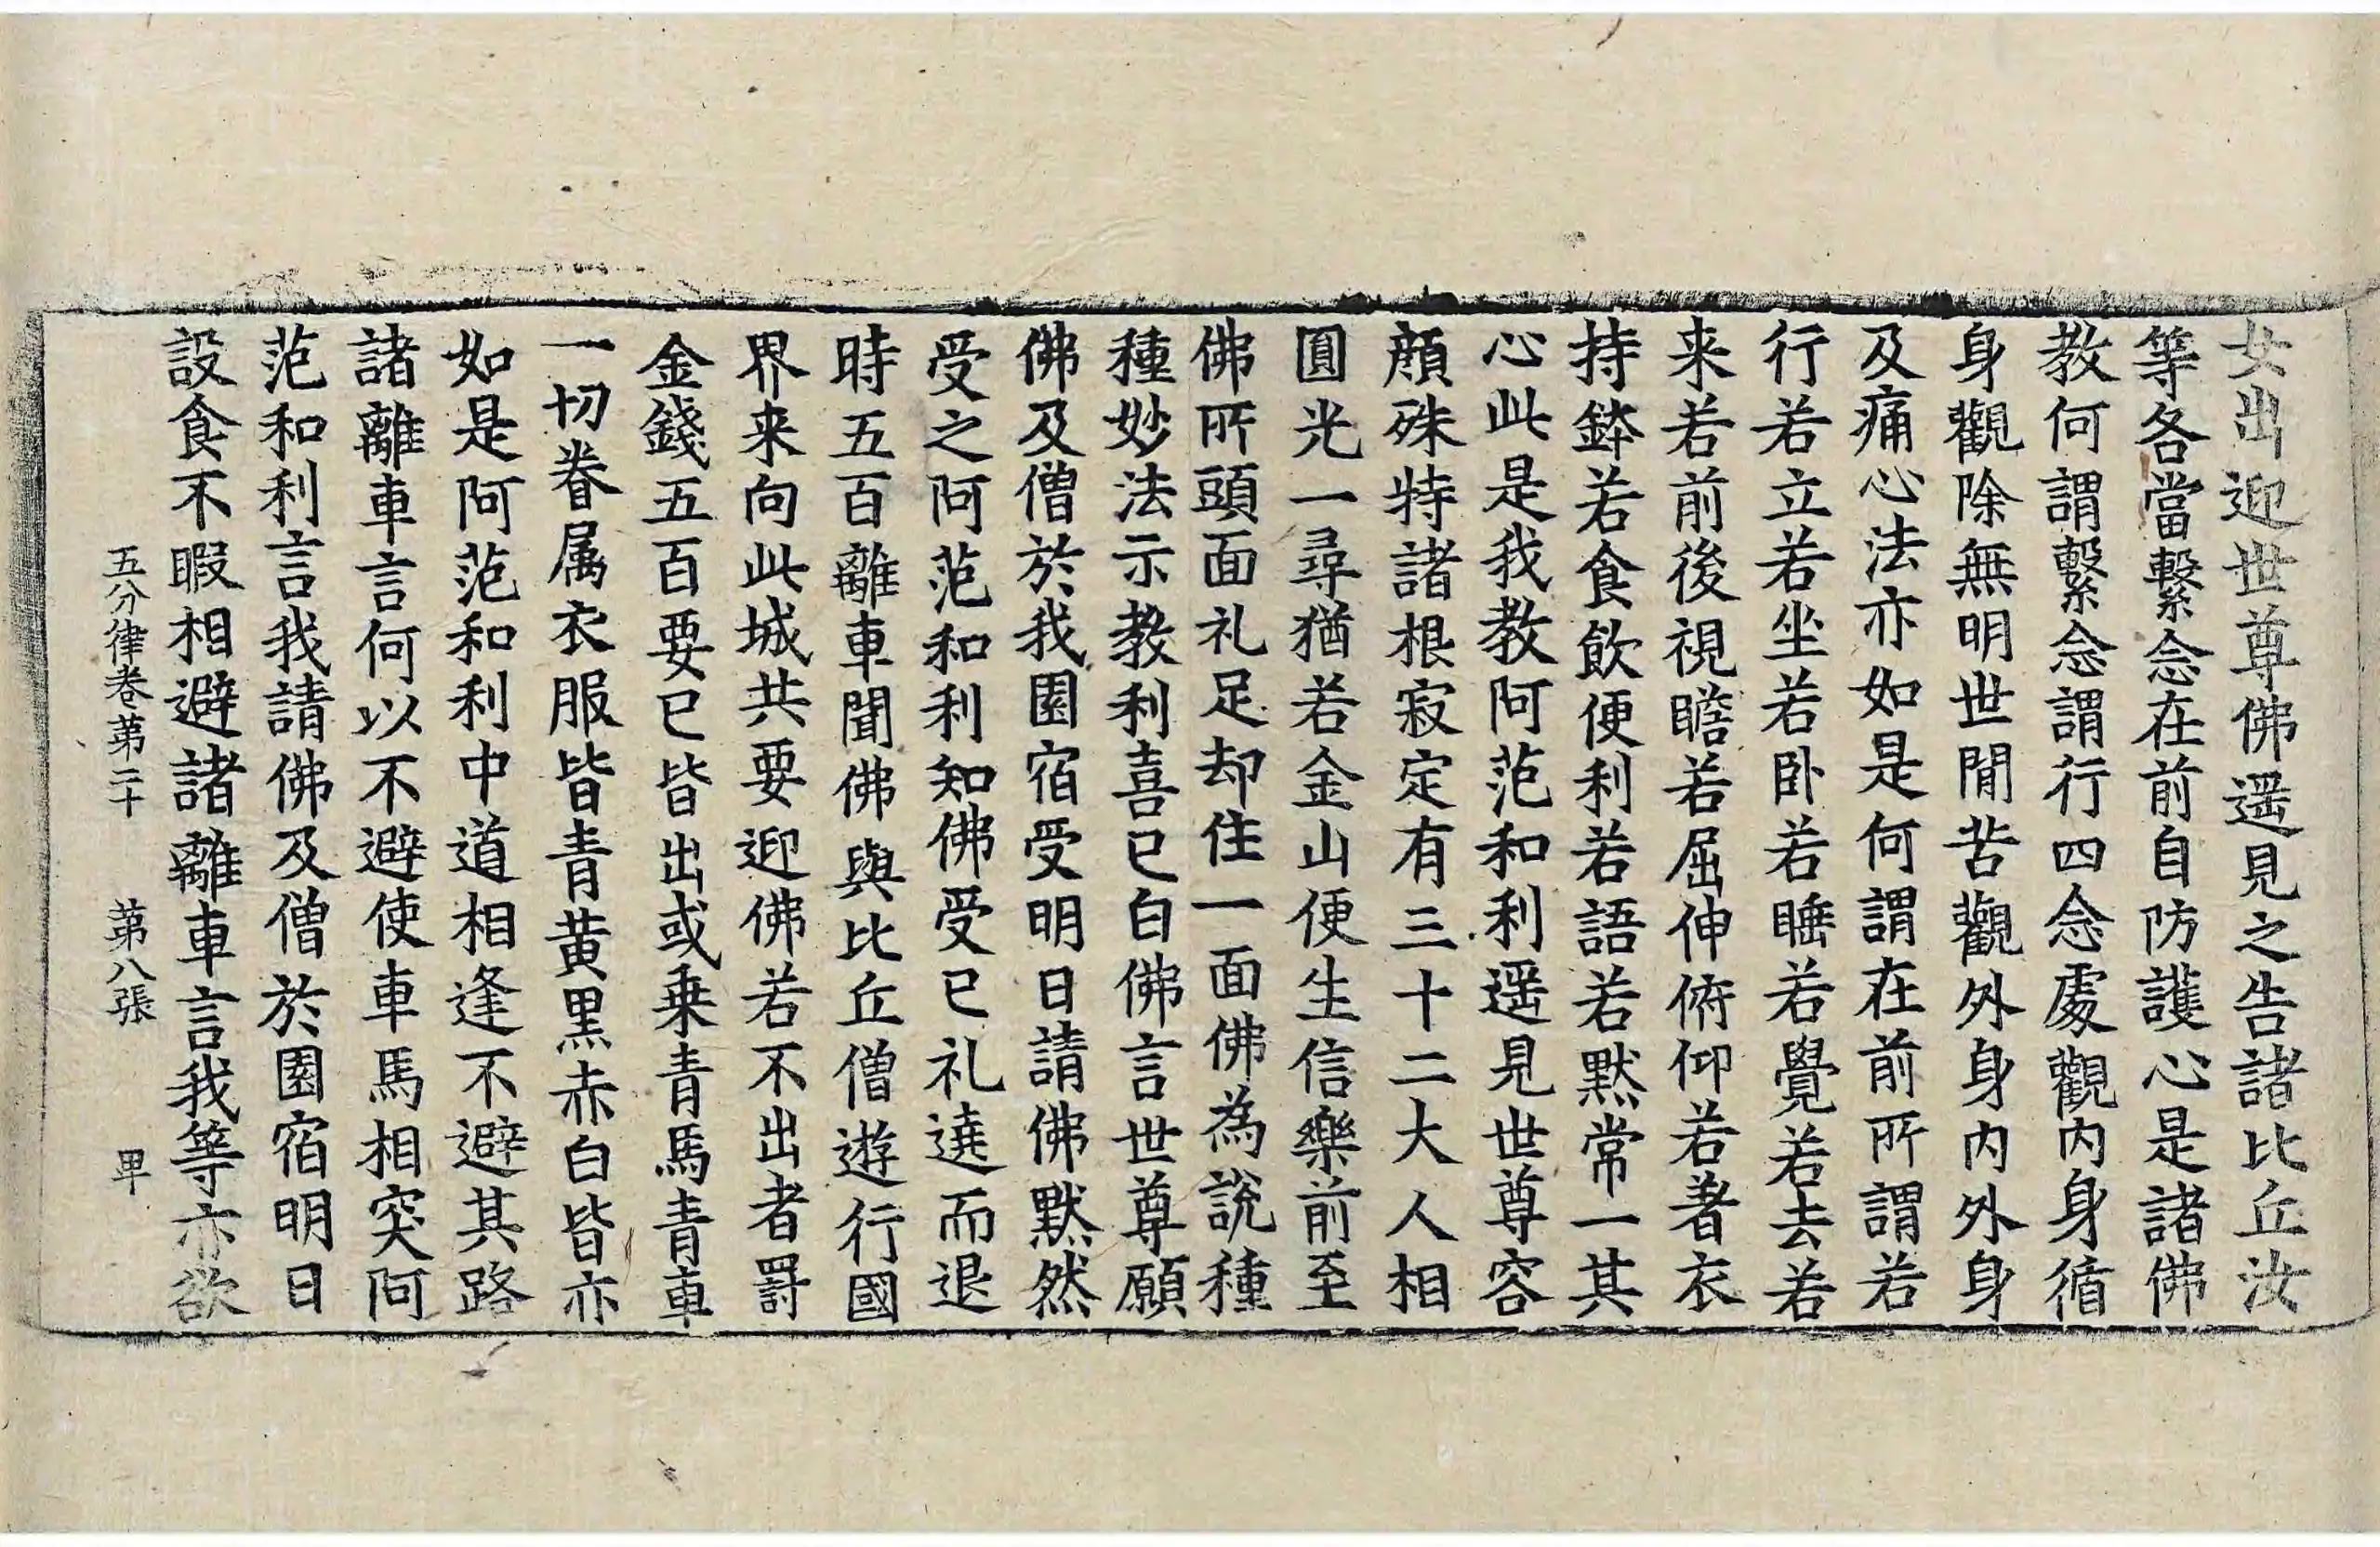 女出迎世尊佛遥見之告諸比丘汝
等各當繫念在前自防護心是諸佛
教何謂繫念謂行四念處觀内身循
身觀除無明世間苦觀外身内外身
及痛心法亦如是何謂在前所謂若
行若立若坐若卧若睡若覺若去若
来若前後視瞻若屈伸俯仰若著衣
持鉢若食飲便利若語若默常一其
心此是我教阿范和利遥見世尊容
顔殊特諸根寂定有三十二大人相
圓光一尋猶若金山便生信樂前至
佛所頭面礼足却住一面佛為說種
種妙法示教利喜已白佛言世尊願
佛及僧於我園宿受明日請佛默然
受之阿范和利知佛受已礼遶而退
時五百離車聞佛與比丘僧遊行國
界来向此城共要迎佛若不出者罸
金錢五百要已皆出或乗青馬青車
一切眷属衣服皆青黄黑赤白皆亦
如是阿范和利中道相逢不避其路
諸離車言何以不避使車馬相突阿
范和利言我請佛及僧於園宿明日
設食不暇相避諸離車言我等亦欲
五分律卷第二十 第八張